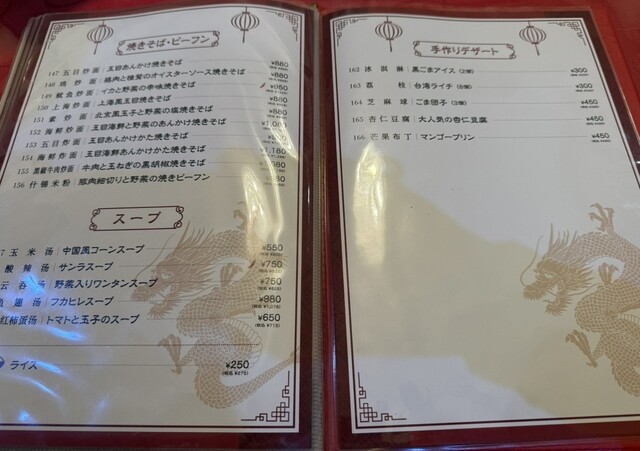 焼きそば・ビーフン
147 五目炒面 玉目あんかけ焼きそば ¥880
148 鶏炒面 鶏肉と椎茸のオイスターソース焼きそば ¥880
149 魷魚炒面 イカと野菜の辛味焼きそば
150 上海炒面 上海風玉目焼きそば
151 素炒面 北京風玉子と野菜の塩焼きそば
152 海鮮炒面 玉目海鮮と野菜のあんかけ焼きそば
153 五目炸面 玉目あんかけかた焼きそば
154 海鮮炸面 玉目海鮮あんかけかた焼きそば ¥1,180
155 黒椒牛肉炒面 牛肉と玉ねぎの黒胡椒焼きそば
156 什锦米粉 豚肉細切りと野菜の焼きビーフン
スープ
玉米汤 中国風コーンスープ ¥550
酸辣汤 サンラスープ ¥750
云吞汤 野菜入りワンタンスープ ¥750
翅汤 フカヒレスープ ¥980
红柿蛋汤 トマトと玉子のスープ ¥650
(税込 ¥715)
ライス ¥250
(税込 ¥275)
手作りデザート
162 冰淇淋 黒ごまアイス(2個) ¥300
163 荔枝 台湾ライチ ¥300
164 芝麻球 ごま団子(3個) ¥450
165 杏仁豆腐 大人気の杏仁豆腐 ¥450
166 芒果布丁 マンゴープリン ¥450